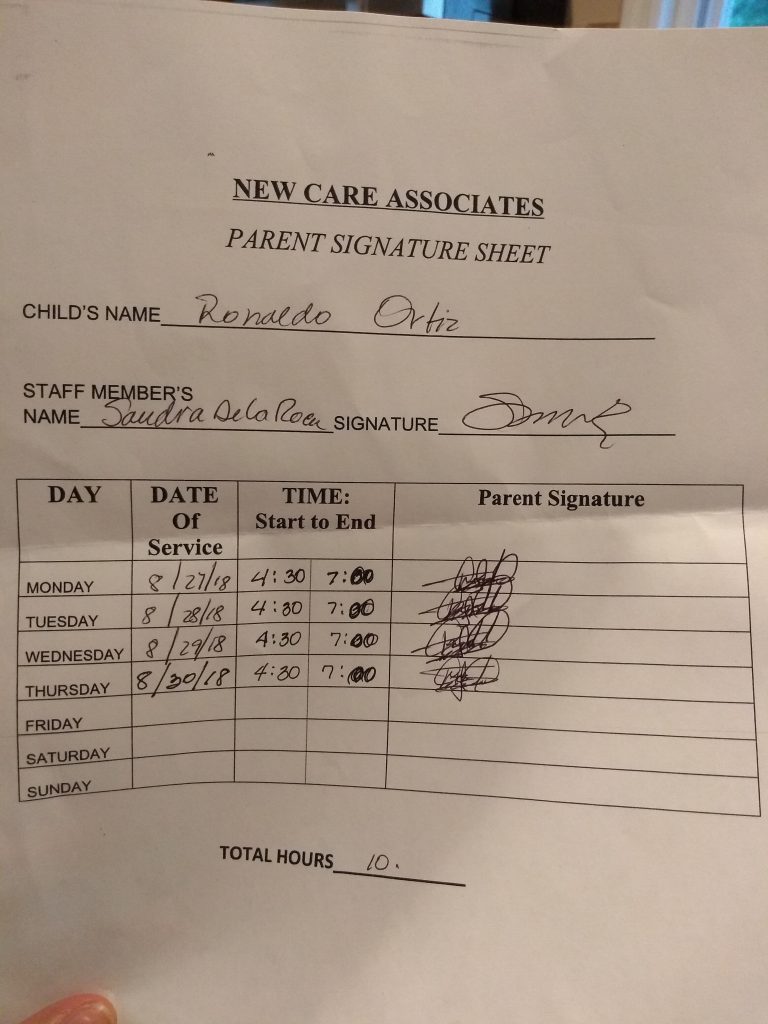 NEW CARE ASSOCIATES
PARENT SIGNATURE SHEET
CHILD'S NAME Ronaldo Ortiz
STAFF MEMBER'S
NAME Sandra DelaRoca SIGNATURE
DAY DATE Of Service TIME: Start to End Parent Signature
MONDAY 8/27/18 4:30 7:00
TUESDAY 8/28/18 4:30 7:00
WEDNESDAY 8/29/18 4:30 7:00
THURSDAY 8/30/18 4:30 7:00
FRIDAY
SATURDAY
SUNDAY
TOTAL HOURS 10.